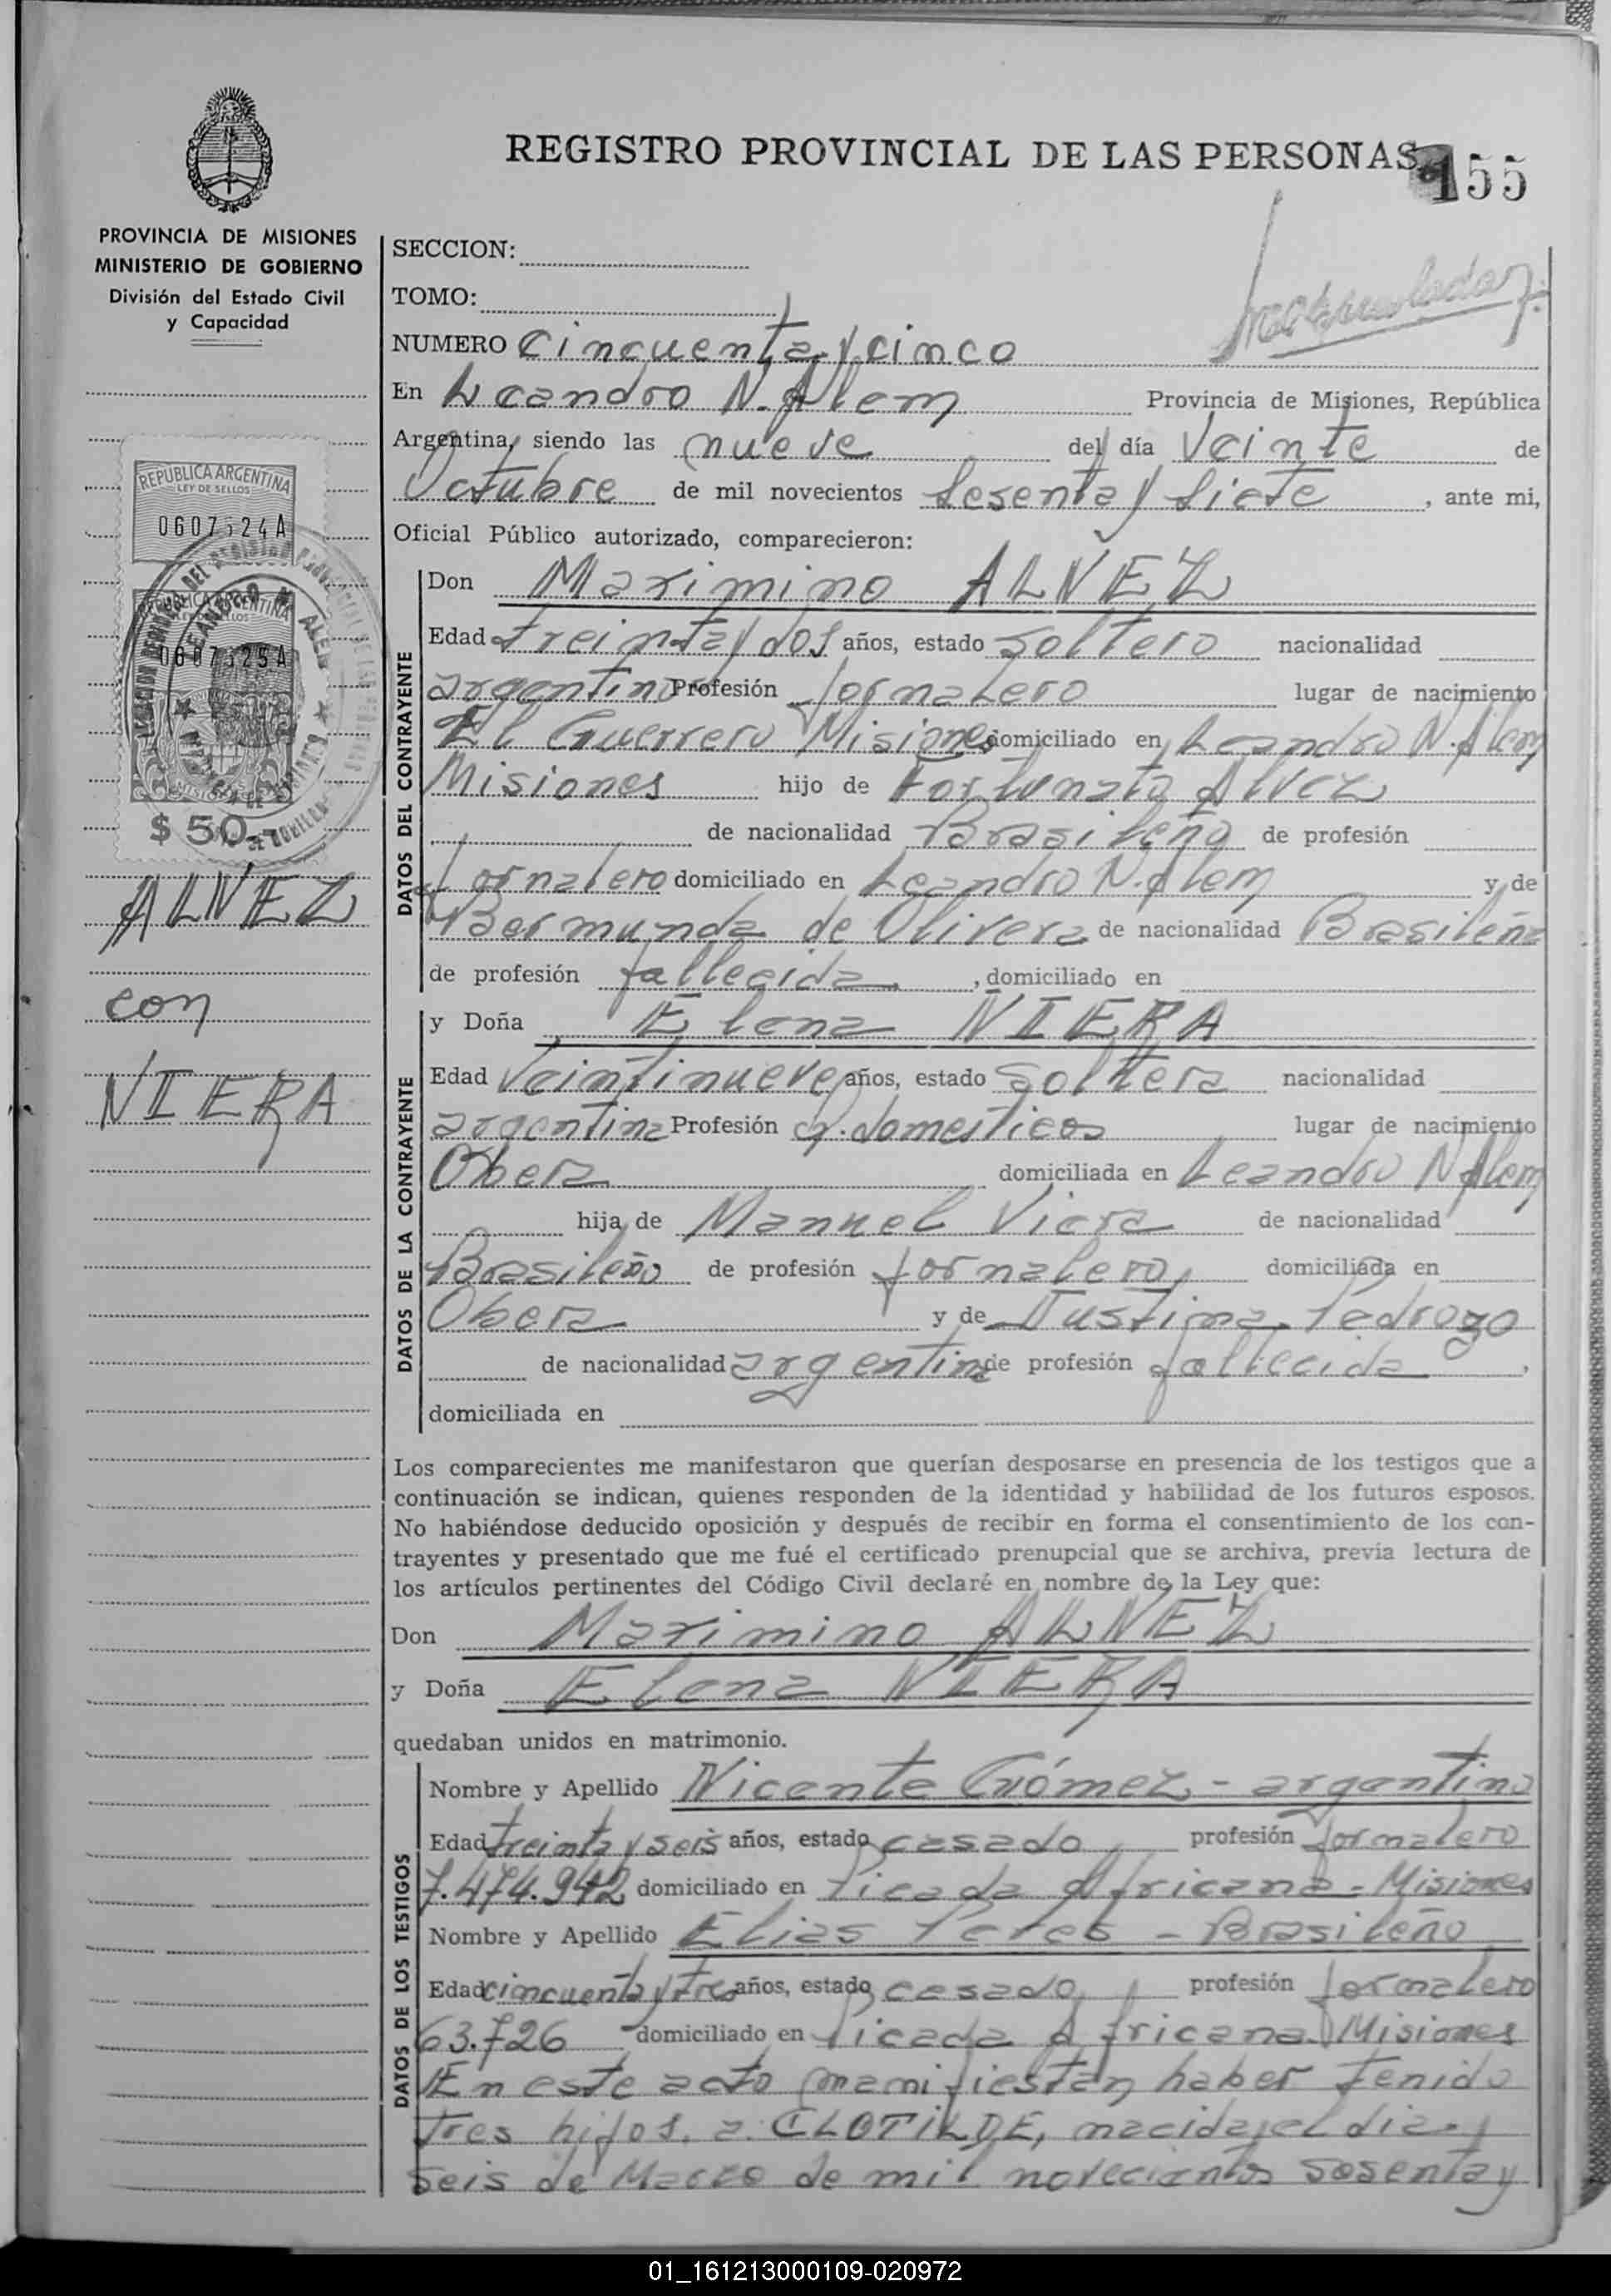 REGISTRO PROVINCIAL DE LAS PERSONAS
155
PROVINCIA DE MISIONES
MINISTERIO DE GOBIERNO
División del Estado Civil
y Capacidad
REPUBLICA ARGENTINA
LEY DE SELLOS
$ 50.-
ALVEZ
con
VIERA
SECCION:
TOMO:
NUMERO Cincuenta y cinco
En Leandro N. Alem Provincia de Misiones, República
Argentina, siendo las nueve del día Veinte de
Octubre de mil novecientos Sesenta y Siete, ante mi,
Oficial Público autorizado, comparecieron:
DATOS DEL CONTRAYENTE
Don Maximino ALVEZ
Edad treinta y dos años, estado Soltero nacionalidad
argentino Profesión Jornalero lugar de nacimiento
El Guerrero Misiones domiciliado en Leandro N. Alem
Misiones hijo de Fortunato Alvez
de nacionalidad Brasileño de profesión
Jornalero domiciliado en Leandro N. Alem y de
Bermunda de Olivera de nacionalidad Brasileña
de profesión fallecida, domiciliado en
DATOS DE LA CONTRAYENTE
y Doña Elena VIERA
Edad Veintinueve años, estado Soltera nacionalidad
argentina Profesión Q. domesticos lugar de nacimiento
Obera domiciliada en Leandro N Alem
hija de Manuel Viera de nacionalidad
Brasileño de profesión Jornalero, domiciliada en
Obera y de Justina Pedrozo
de nacionalidad argentina de profesión fallecida,
domiciliada en
Los comparecientes me manifestaron que querían desposarse en presencia de los testigos que a
continuación se indican, quienes responden de la identidad y habilidad de los futuros esposos.
No habiéndose deducido oposición y después de recibir en forma el consentimiento de los con-
trayentes y presentado que me fué el certificado prenupcial que se archiva, previa lectura de
los artículos pertinentes del Código Civil declaré en nombre de la Ley que:
Don Maximino ALVEZ
y Doña Elena VIERA
quedaban unidos en matrimonio.
DATOS DE LOS TESTIGOS
Nombre y Apellido Vicente Gómez - argentino
Edad treinta y seis años, estado casado, profesión Jornalero
7.474.942 domiciliado en Picada Africana - Misiones
Nombre y Apellido Elias Peres - Brasileño
Edad cincuenta y tres años, estado casado, profesión Jornalero
63.726 domiciliado en Picada Africana Misiones
En este acto manifiestan haber tenido
tres hijos. a: CLOTILDE, nacida el dia
seis de Marzo de mil novecientos sesenta y
01_161213000109-020972